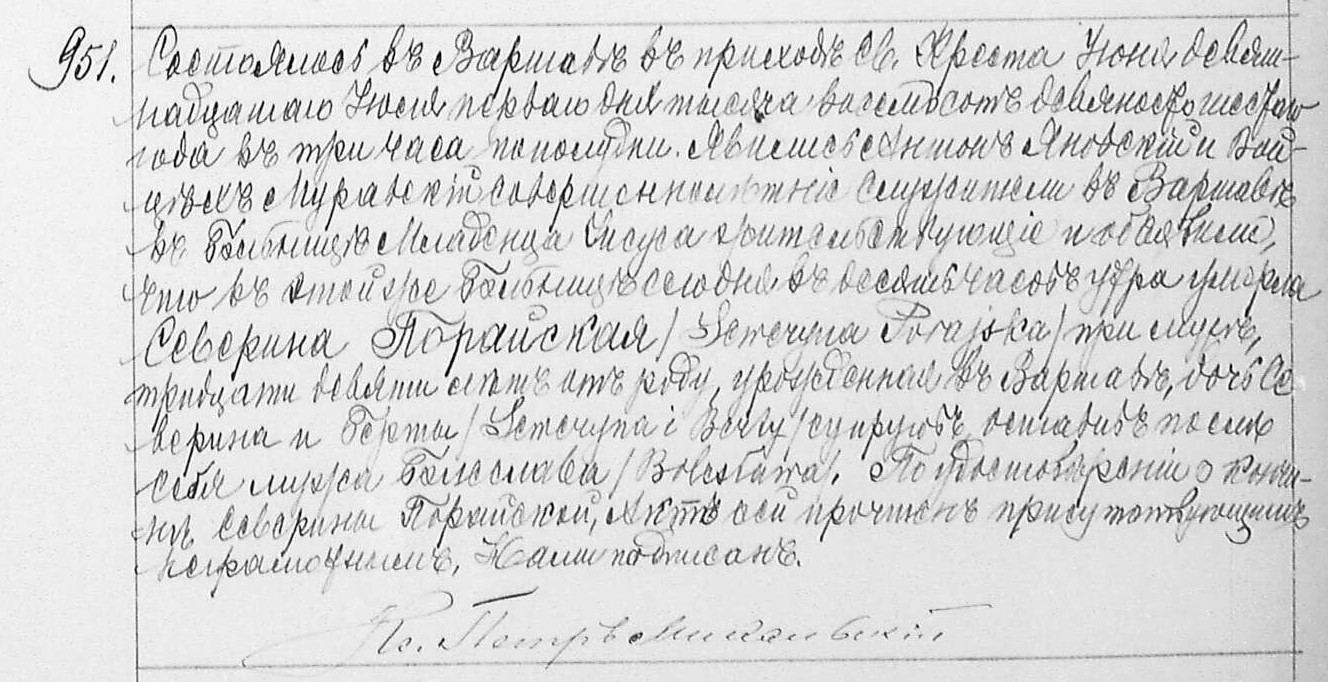 951. Состоялось въ Варшавѣ въ приходѣ Св. Креста Июня девят-
надцатаго Июля перваго дня тысяча восемьсотъ девяносто шестаго
года въ три часа пополудни. Явились Антонъ Яновскій и Вой-
цѣхъ Муравскій совершеннолѣтніе служители въ Варшавѣ
въ Больницѣ Младенца Іисуса жительствующіе и объявили,
что въ этой же Больницѣ сего дня въ десять часовъ утра умерла
Северина Порайская /Seweryna Porajska/ при мужѣ,
тридцати девяти лѣтъ отъ роду, урожденная въ Варшавѣ, дочь Се
верина и Берты /Seweryna i Berty/ супруговъ, оставивъ послѣ
себя мужа Болеслава /Bolesława/. По удостовѣреніи о кончи-
нѣ Северины Порайской, Актъ сей прочтенъ присутствующимъ
неграмотнымъ, Нами подписанъ.
Кс. Петръ